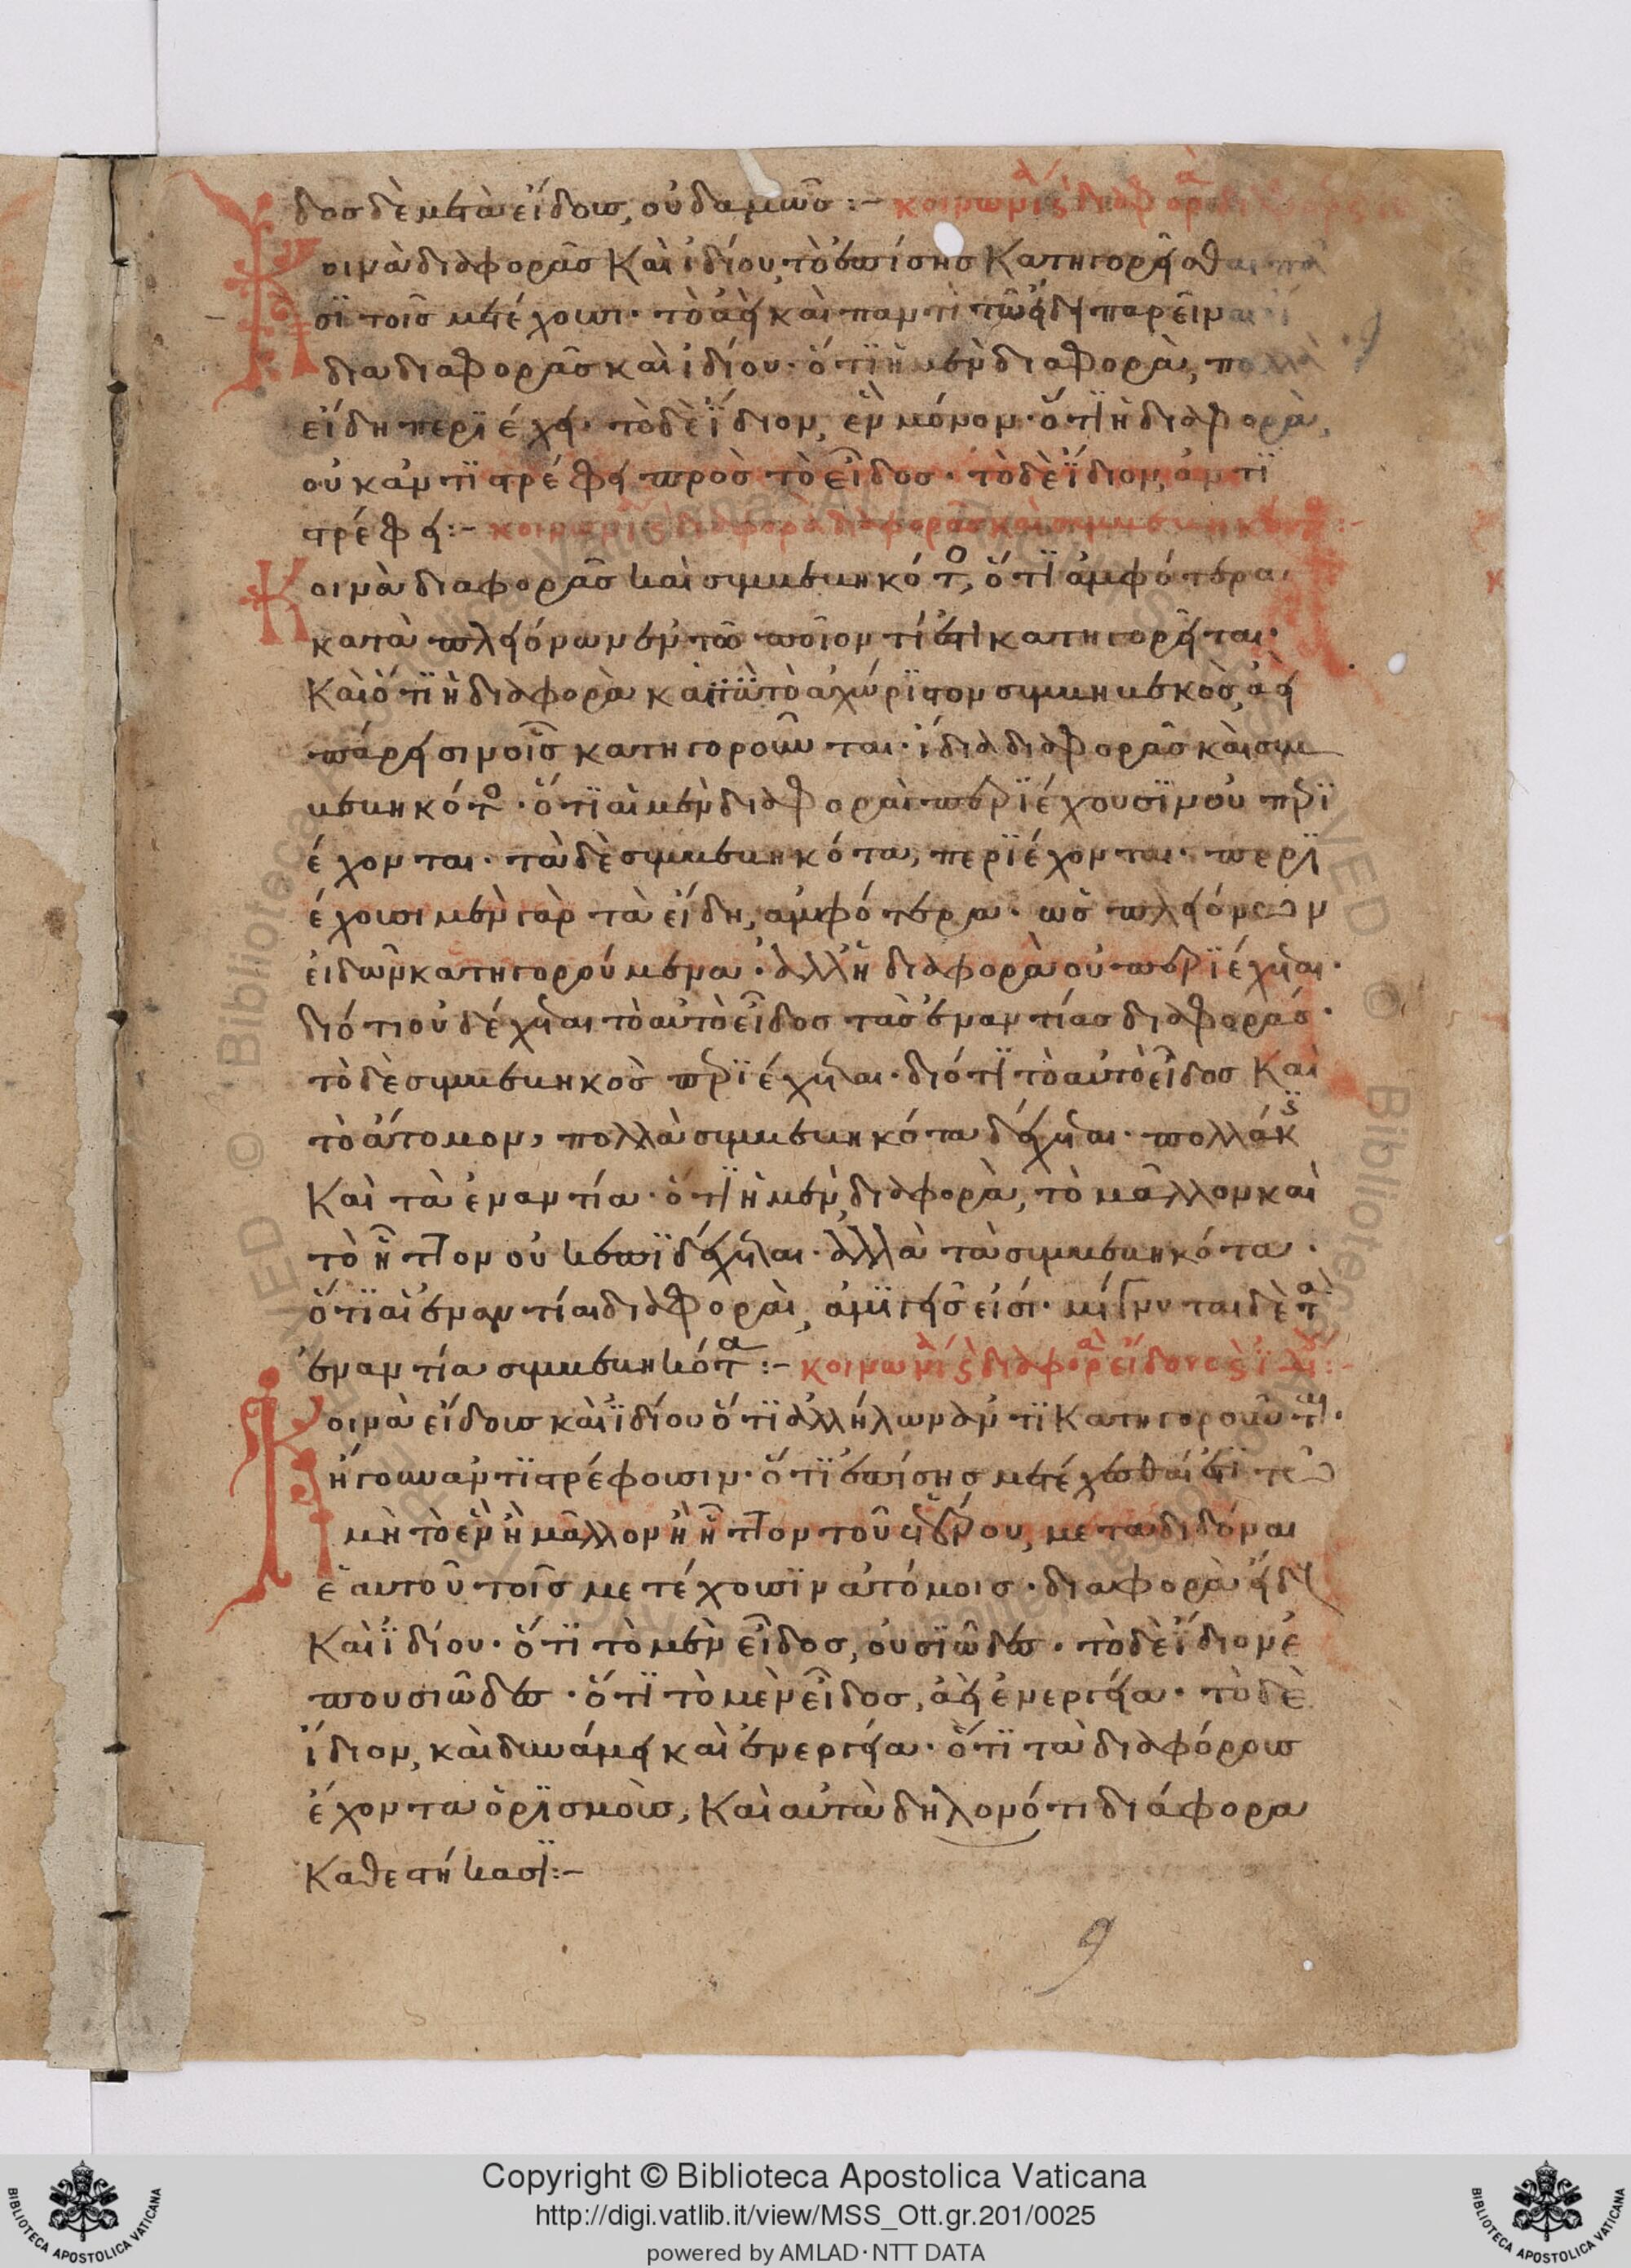 δοσ δὲ μετὰ εἴδους, οὐδαμῶσ :- κοινωνί(α) διαφορ
οινὰ διαφορᾶσ Καὶ ἰδίου, τὸ ἐπίσησ Κατηγορεῖσθαι
σϊ τοῖσ μετέχουσι· τὸ ἀεὶ καὶ παντὶ τῶ εἴδει παρεῖναι
δια διαφορᾶσ καὶ ἰδίου· ὅτϊ ἡ μὲν διαφορὰ, πολλὰ
εἴδη περϊέχει· τὸ δὲ ἴδιον, ἓν μόνον· ὅτϊ ἡ διαφορὰ,
οὐκ ἀντϊστρέφει προσ τὸ εἶδοσ· τὸ δὲ ἴδιον, ἀντϊ
στρέφει :- κοινωνί διαφορᾶσ καὶ συμβεβηκότ
Κοινὰ διαφορᾶσ καὶ συμβεβηκότο, ὅτϊ ἀμφότερα
κατὰ πλειόνων ἐν τῶ ποῖον τί ἐστϊ κατηγορεῖται·
Καὶ ὅτϊ ἡ διαφορὰ καὶ τὸ αχώρϊστον συμβεβηκὸσ, ἀεὶ
πάρεισιν οἷσ κατηγοροῦνται· ἴδια διαφορᾶσ καὶ συμ
βεβηκότο· ὅτϊ αἱ μὲν διαφοραὶ περϊέχουσϊν οὐ περϊ
έχονται· τὰ δὲ συμβεβηκότα, περϊέχονται· περϊ
έχουσι μὲν γὰρ τὰ εἴδη, ἀμφότερα· ὡσ πλειόνων
εἰδῶν κατηγορούμενα· ἀλλ' ἡ διαφορὰ οὐ περϊέχεται·
διότι οὐ δέχεται τὸ αὐτὸ εἶδοσ τὰσ ἐναντίασ διαφοράσ·
τὸ δὲ συμβεβηκοσ περϊέχεται· διότϊ τὸ αὐτὸ εἶδοσ Καὶ
τὸ ἄτομον, πολλὰ συμβεβηκότα δέχεται· πολλάκ
Καὶ τὰ ἐναντία· ὅτϊ ἡ μὲν διαφορὰ, τὸ μᾶλλον καὶ
τὸ ἧττον οὐκ ἐπϊδέχεται· ἀλλὰ τὰ συμβεβηκότα·
ὅτϊ αἱ ἐναντίαι διαφοραὶ, ἀμϊγεῖσ εἰσί· μίγνυνται δὲ τὰ
ἐναντία συμβεβηκότα :- κοινωνί ϛ διαφορὰ εἴδουσ ϛ ἰδί :-
Κοινὰ εἴδουσ καὶ ϊδίου ὅτϊ ἀλλήλων ἀντϊ Κατηγοροῦντ·
ἤγουν αντϊστρέφουσιν· ὅτϊ ἐπίσησ μετέχεσθαί ἐστϊ τῶ
μὴ τὸ ἓν ἢ μᾶλλον ἢ ἧττον τοῦ ἑτέρου, μεταδιδόναι
ἑαυτοῦ τοῖσ μετέχουσϊν ἀτόμοισ· διαφορὰ εἴδ
Καὶ ϊδίου· ὅτϊ τὸ μὲν εἶδοσ, οὐσϊῶδεσ· τὸ δὲ ἴδιον ἐ
πουσιῶδεσ· ὅτϊ τὸ μὲν εἶδοσ, ἀεὶ ἐνεργεία· τὸ δὲ
ἴδιον, καὶ δυνάμει καὶ ἐνεργεία· ὅτϊ τὰ διαφόρουσ
ἔχοντα ὁρϊσμοὺσ, Καὶ αὐτὰ δηλονότι διάφορα
Καθεστήκασϊ :-
9
Copyright © Biblioteca Apostolica Vaticana
http://digi.vatlib.it/view/MSS_Ott.gr.201/0025
powered by AMLAD·NTT DATA
BIBLIOTECA APOSTOLICA VATICANA
BIBLIOTECA APOSTOLICA VATICANA